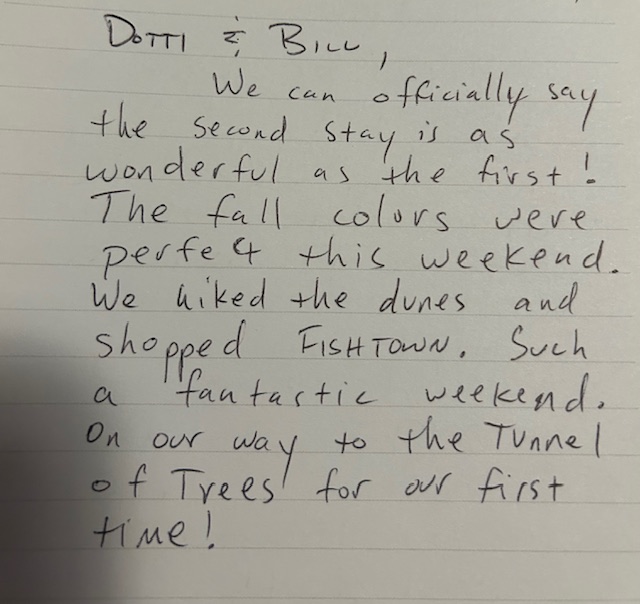 Dotti & Bill,
We can officially say
the second stay is as
wonderful as the first!
The fall colors were
perfect this weekend.
We hiked the dunes and
shopped FISHTOWN. Such
a fantastic weekend.
On our way to the Tunnel
of Trees for our first
time!